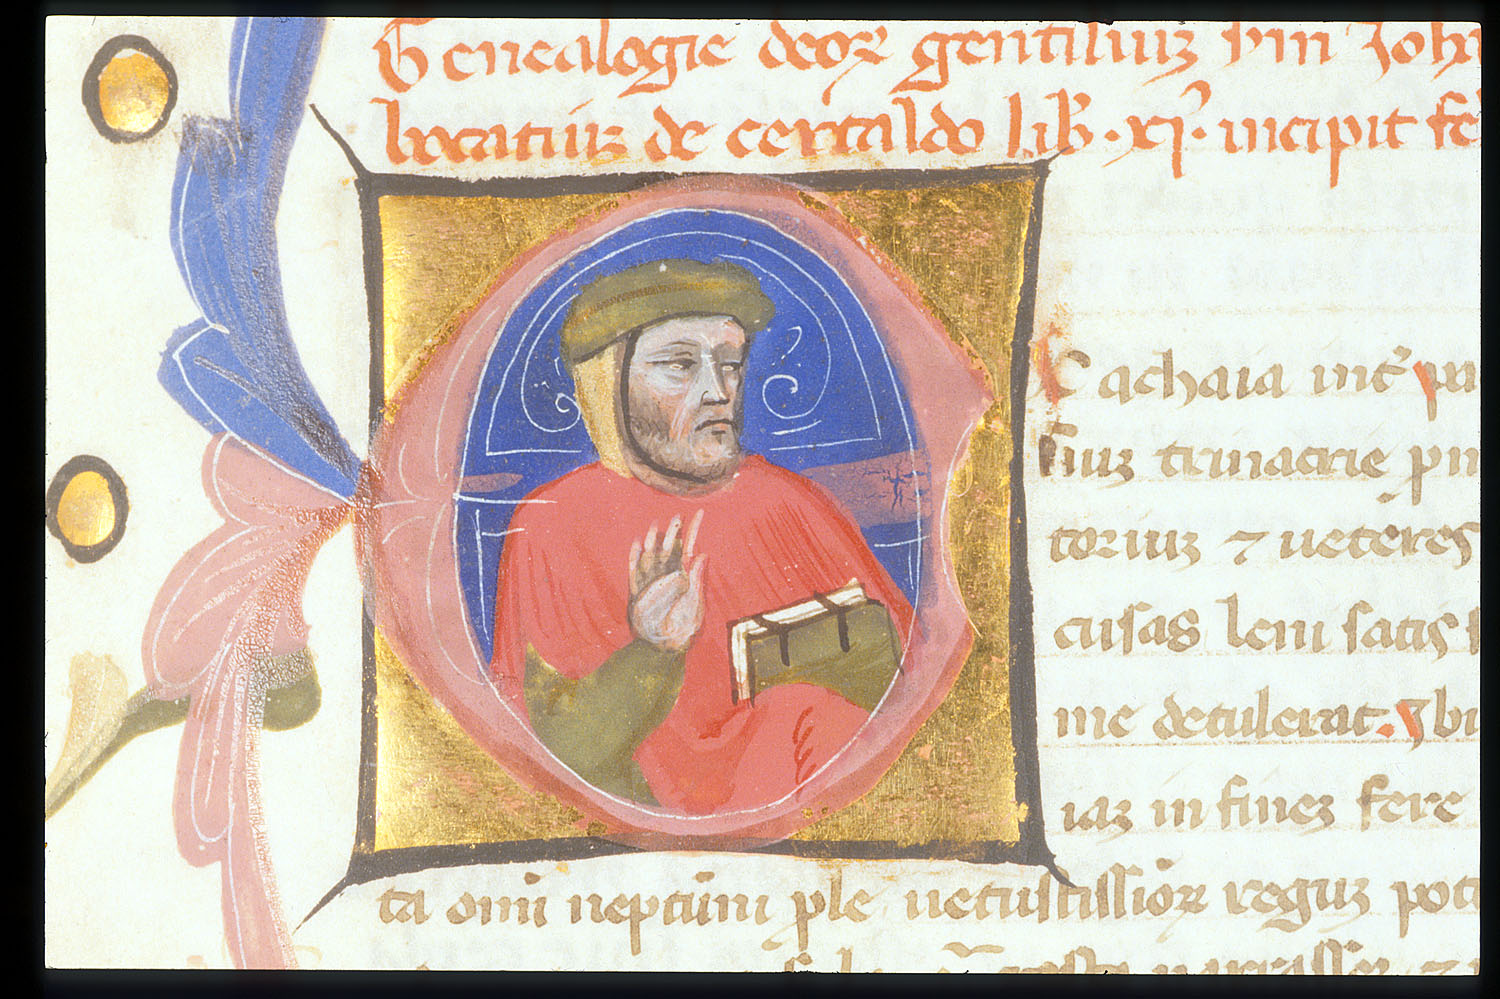 Genealogie deoꝝ gentiliuꝫ ẜm Joh
bocatiuꝫ de certaldo lib̅·xj·incipit fe
C achaia int̅ pa
tiuꝫ trinacrie pͥn
toriuꝫ ⁊ ueteres
cusas leni satis
me detulerat. Ꝫbi
iaꝫ in fineꝫ fere
ta om̅i neptuni ꝓle uetustissioꝝ reguꝫ pot